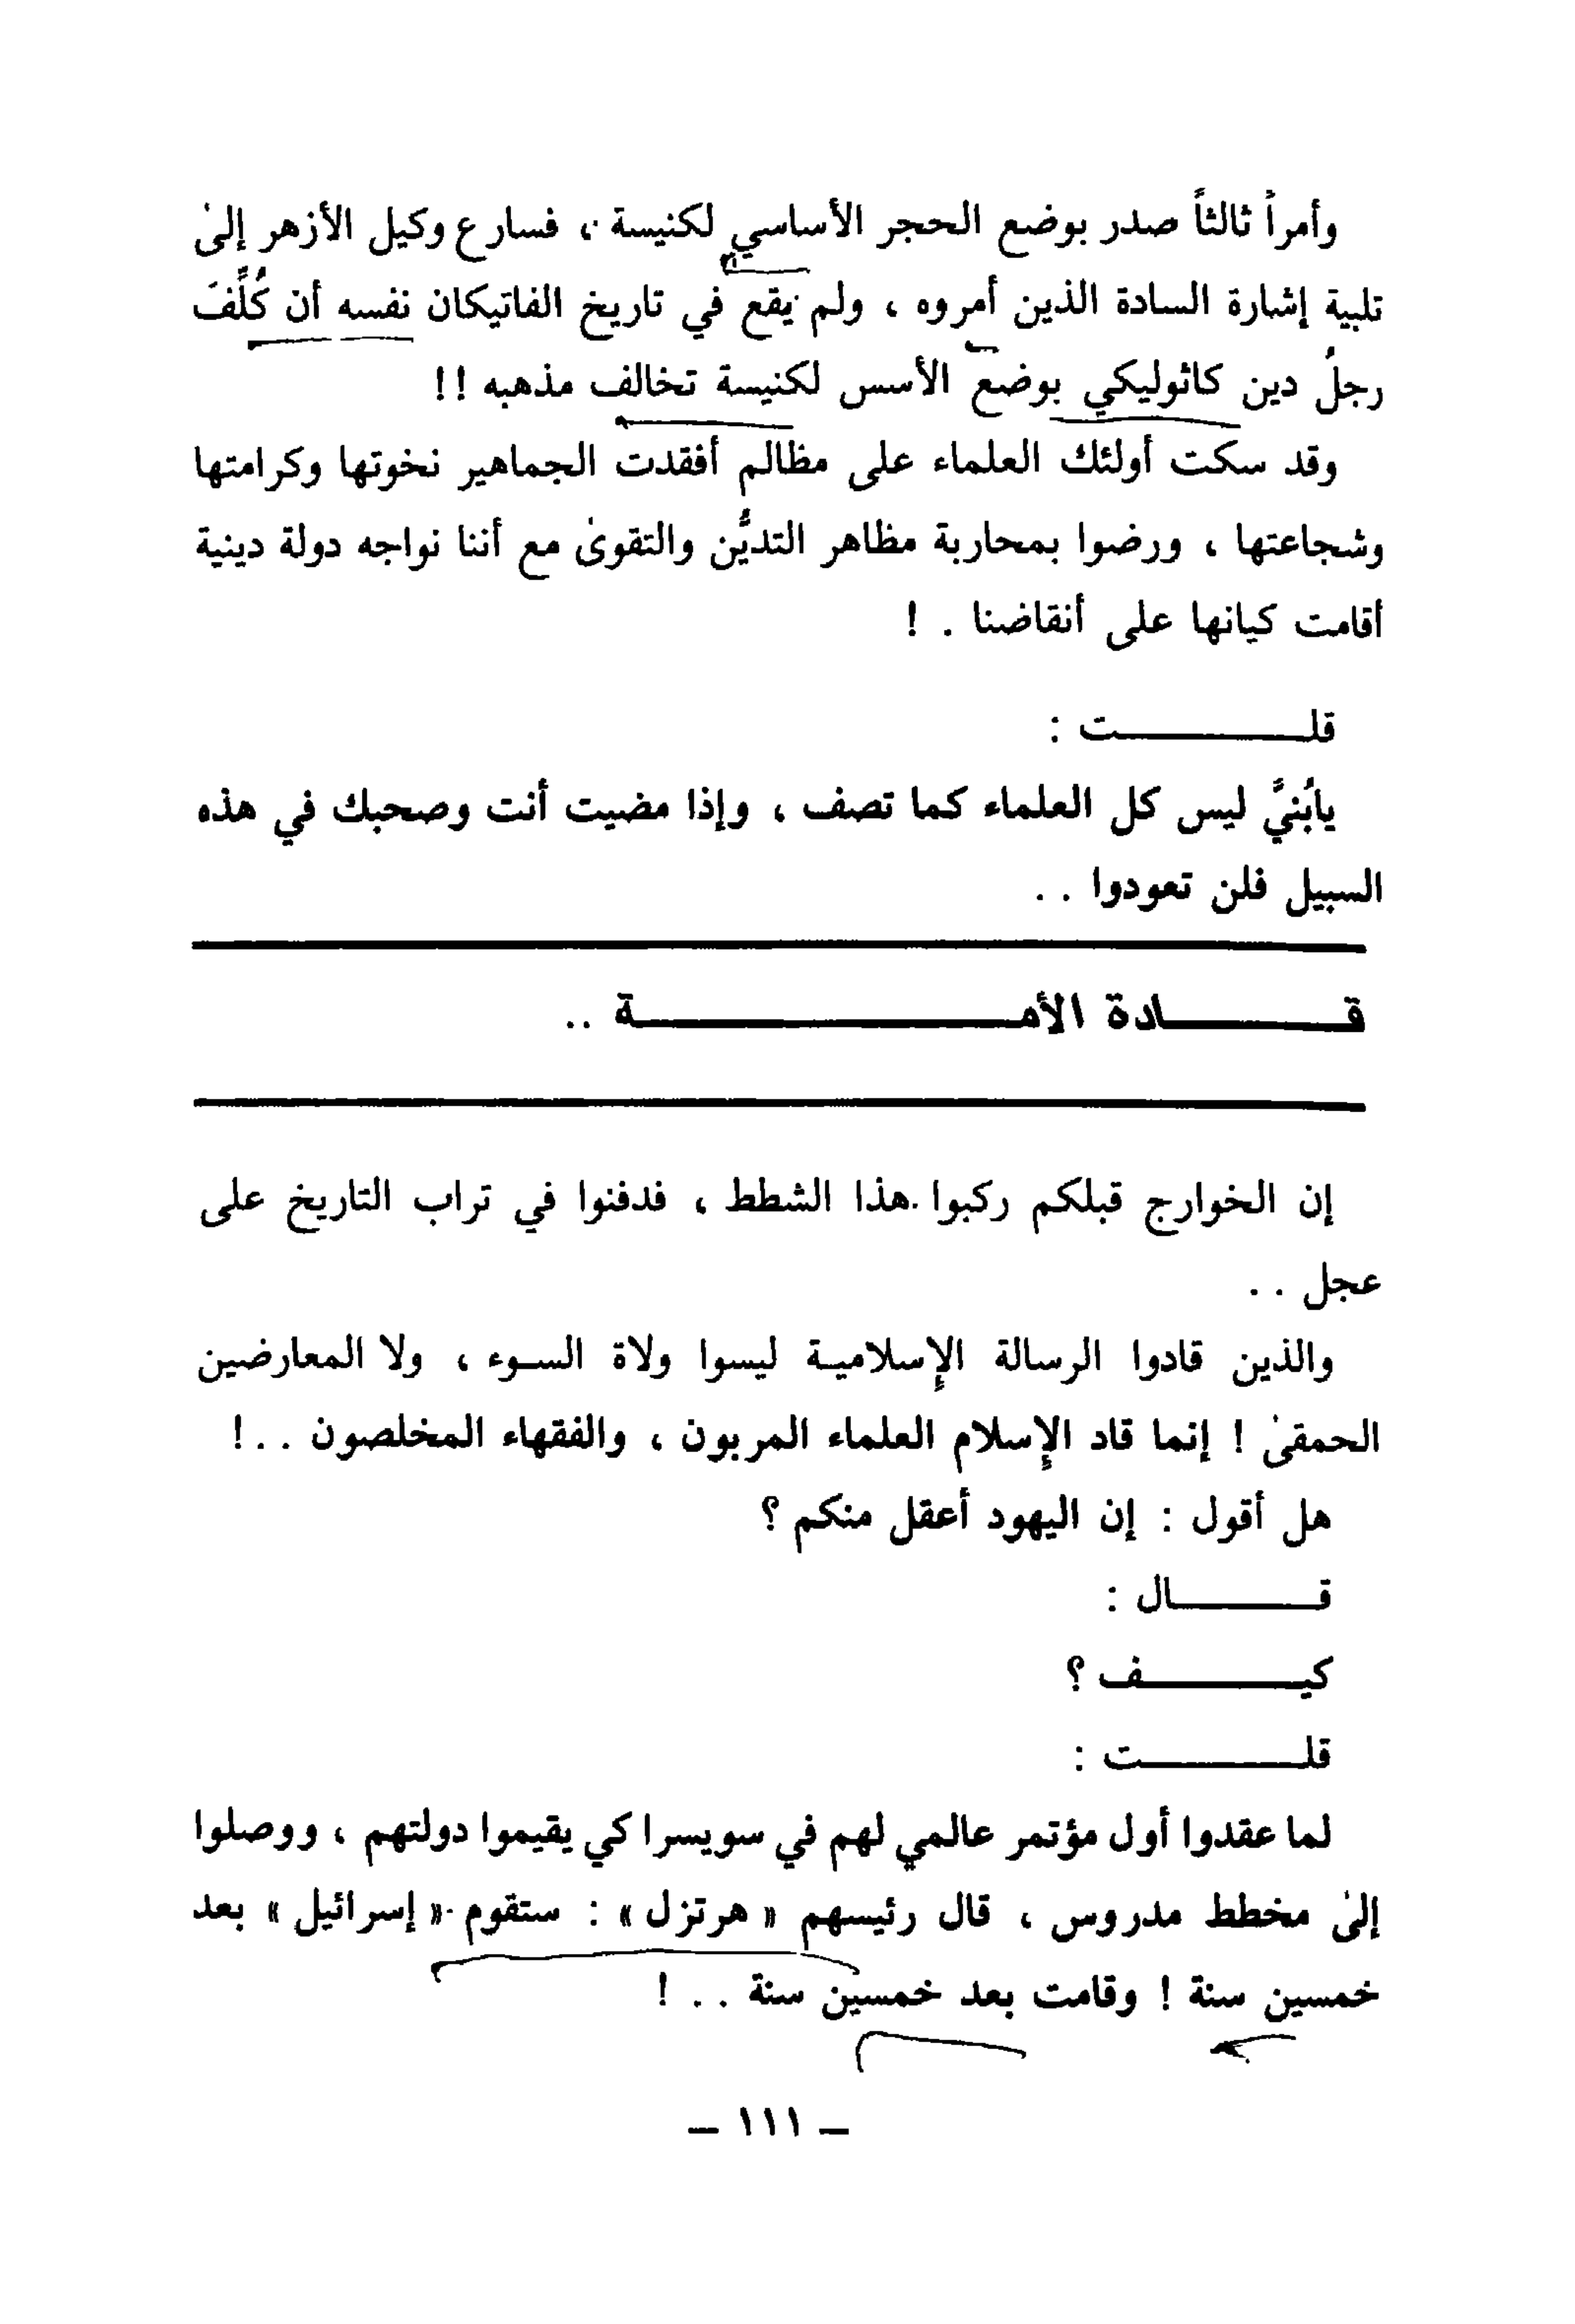 وأمراً ثالثاً صدر بوضع الحجر الأساسي لكنيسة ، فسارع وكيل الأزهر إلىٰ
تلبية إشارة السادة الذين أمروه ، ولم يقع في تاريخ الفاتيكان نفسه أن كُلِّفَ
رجلُ دين كاثوليكي بوضع الأسس لكنيسة تخالف مذهبه !!
وقد سكت أولئك العلماء على مظالم أفقدت الجماهير نخوتها وكرامتها
وشجاعتها ، ورضوا بمحاربة مظاهر التديُّن والتقوىٰ مع أننا نواجه دولة دينية
أقامت كيانها على أنقاضنا . !
قلـــــــــت :
يابُنيَّ ليس كل العلماء كما تصف ، وإذا مضيت أنت وصحبك في هذه
السبيل فلن تعودوا . .
قـــــــــادة الأمـــــــــــــــــة ..
إن الخوارج قبلكم ركبوا هذا الشطط ، فدفنوا في تراب التاريخ على
عجل . .
والذين قادوا الرسالة الإسلامية ليسوا ولاة السوء ، ولا المعارضين
الحمقىٰ ! إنما قاد الإسلام العلماء المربون ، والفقهاء المخلصون . . !
هل أقول : إن اليهود أعقل منكم ؟
قـــــــال :
كيـــــــــف ؟
قلـــــــــت :
لما عقدوا أول مؤتمر عالمي لهم في سويسرا كي يقيموا دولتهم ، ووصلوا
إلىٰ مخطط مدروس ، قال رئيسهم « هرتزل » : ستقوم « إسرائيل » بعد
خمسين سنة ! وقامت بعد خمسين سنة . . !
– ١١١ –